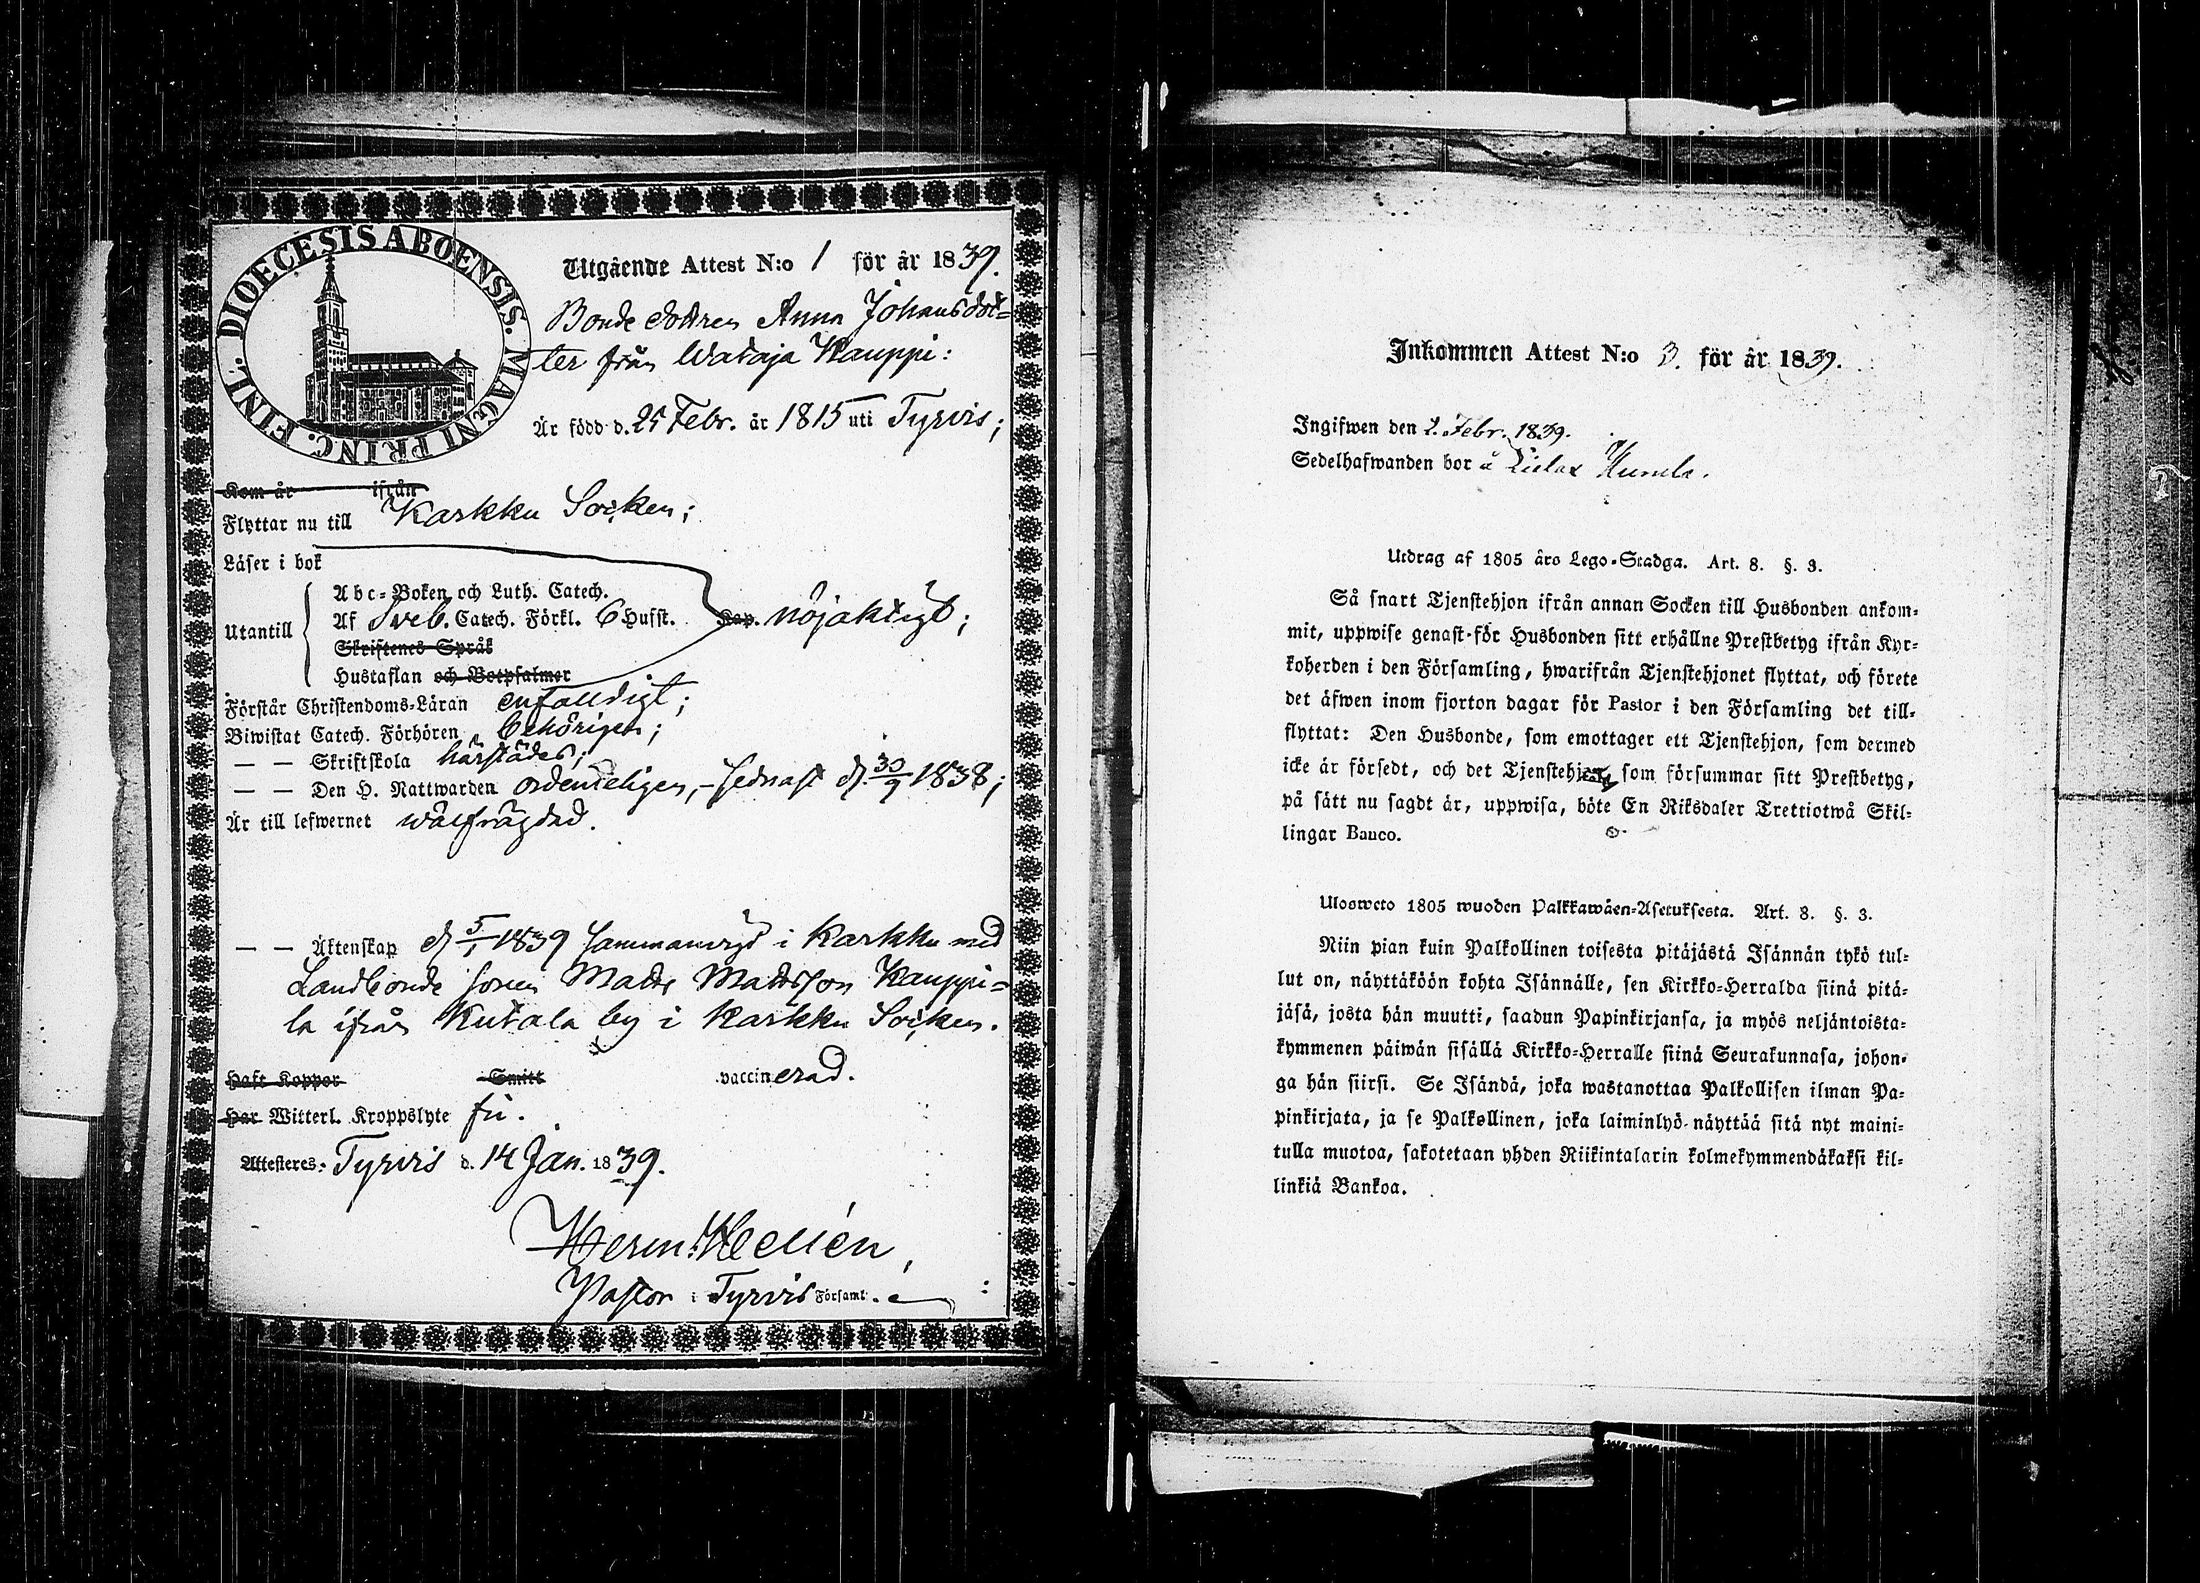 DIOECESIS ABOENSIS. MAGNI PRINC. FINL.
Utgående Attest N:o 1 för år 1839.
Bonde dottren Anna Johansdot=
ter från Wataja Kauppi:
Är född d. 25 Febr. år 1815 uti Tyrvis;
Kom år ifrån
Flyttar nu till Karkku Socken;
Läser i bok
Utantill
Abc=Boken och Luth. Catech.
Af Sveb. Catech. Förkl. 6 Hufst. Kap. nöjaktigt;
Skriftenes Språk
Hustaflan och Botpsalmer
Förstår Christendoms=Läran enfalldigt;
Biwistat Catech. Förhören behörigen;
— — Skriftskola härstädes;
— — Den H. Nattwarden ordenteligen, – sednast d. 30/9 1838;
Är till lefwernet wälfrägdad.
— — Äktenskap d 5/1 1839 sammanvigd i Karkku med
Landbonde sonen Matts Mattsson Kauppi=
la ifrån Kutala by i Karkku Socken.
Haft Koppor Smitt vaccinerad.
Har Witterl. Kroppslyte fri.
Attesteres. Tyrvis d. 14 Jan. 1839.
Herm. Hellén,
Pastor i Tyrvis Församl.
Inkommen Attest N:o 3. för år 1839.
Ingifwen den 2. Febr. 1839.
Sedelhafwanden bor å Humla.
Utdrag af 1805 års Lego=Stadga. Art. 8. §. 3.
Så snart Tjenstehjon ifrån annan Socken till Husbonden ankom=
mit, uppwise genast för Husbonden sitt erhållne Prestbetyg ifrån Kyr=
koherden i den Församling, hwarifrån Tjenstehjonet flyttat, och förete
det äfwen inom fjorton dagar för Pastor i den Församling det till=
flyttat: Den Husbonde, som emottager ett Tjenstehjon, som dermed
icke är försedt, och det Tjenstehjon, som försummar sitt Prestbetyg,
på sätt nu sagdt är, uppwisa, böte En Riksdaler Trettiotwå Skil=
lingar Banco.
Ulosweto 1805 wuoden Palkkawäen=Asetuksesta. Art. 8. §. 3.
Niin pian kuin Palkollinen toisesta pitäjästä Isännän tykö tul=
lut on, näyttäköön kohta Isännälle, sen Kirkko=Herralda siinä pitä=
jäsä, josta hän muutti, saadun Papinkirjansa, ja myös neljäntoista=
kymmenen päiwän sisällä Kirkko=Herralle siinä Seurakunnasa, johon=
ga hän siirsi. Se Isändä, joka wastanottaa Palkollisen ilman Pa=
pinkirjata, ja se Palkollinen, joka laiminlyö näyttää sitä nyt maini=
tulla muotoa, sakotetaan yhden Riikintalarin kolmekymmendäkaksi kil=
linkiä Bankoa.